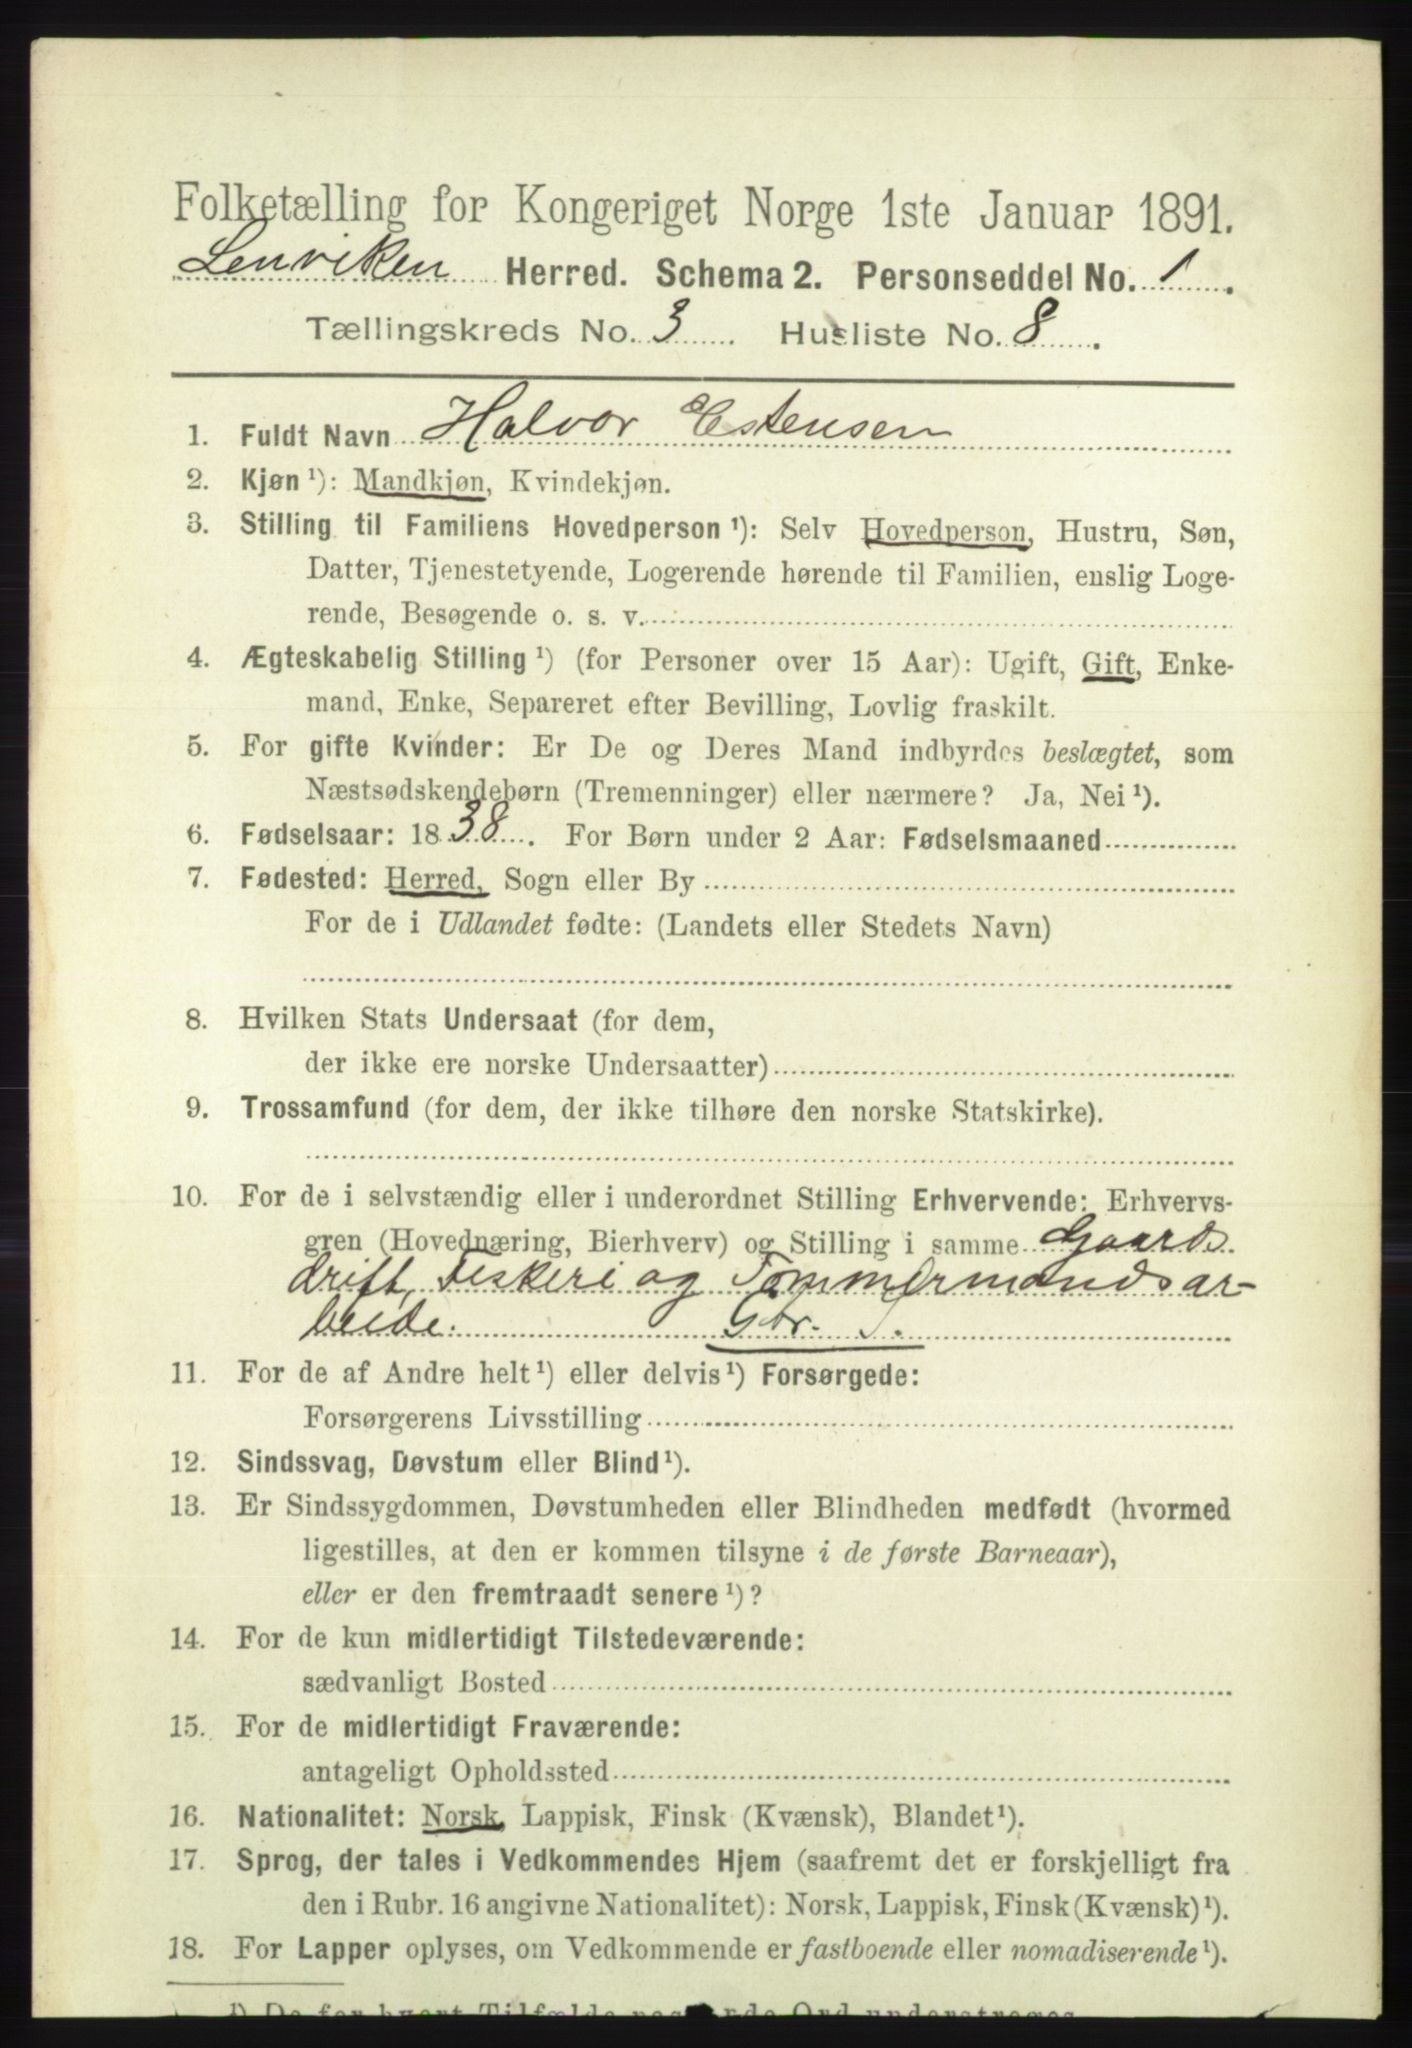 Folketælling for Kongeriget Norge 1ste Januar 1891.
Lenviken Herred. Schema 2. Personseddel No. 1.
Tællingskreds No. 3 Husliste No. 8.
1. Fuldt Navn Halvor Estensen
2. Kjøn ¹): Mandkjøn, Kvindekjøn.
3. Stilling til Familiens Hovedperson ¹): Selv Hovedperson, Hustru, Søn,
Datter, Tjenestetyende, Logerende hørende til Familien, enslig Loge-
rende, Besøgende o. s. v.
4. Ægteskabelig Stilling ¹) (for Personer over 15 Aar): Ugift, Gift, Enke-
mand, Enke, Separeret efter Bevilling, Lovlig fraskilt.
5. For gifte Kvinder: Er De og Deres Mand indbyrdes beslægtet, som
Næstsødskendebørn (Tremenninger) eller nærmere? Ja, Nei ¹).
6. Fødselsaar: 1838. For Børn under 2 Aar: Fødselsmaaned
7. Fødested: Herred, Sogn eller By
For de i Udlandet fødte: (Landets eller Stedets Navn)
8. Hvilken Stats Undersaat (for dem,
der ikke ere norske Undersaatter)
9. Trossamfund (for dem, der ikke tilhøre den norske Statskirke).
10. For de i selvstændig eller i underordnet Stilling Erhvervende: Erhvervs-
gren (Hovednæring, Bierhverv) og Stilling i samme Gaards
drift, Fiskeri og Tømmermandsar-
beide. Gbr. S.
11. For de af Andre helt ¹) eller delvis ¹) Forsørgede:
Forsørgerens Livsstilling
12. Sindssvag, Døvstum eller Blind ¹).
13. Er Sindssygdommen, Døvstumheden eller Blindheden medfødt (hvormed
ligestilles, at den er kommen tilsyne i de første Barneaar),
eller er den fremtraadt senere ¹)?
14. For de kun midlertidigt Tilstedeværende:
sædvanligt Bosted
15. For de midlertidigt Fraværende:
antageligt Opholdssted
16. Nationalitet: Norsk, Lappisk, Finsk (Kvænsk), Blandet ¹).
17. Sprog, der tales i Vedkommendes Hjem (saafremt det er forskjelligt fra
den i Rubr. 16 angivne Nationalitet): Norsk, Lappisk, Finsk (Kvænsk) ¹).
18. For Lapper oplyses, om Vedkommende er fastboende eller nomadiserende ¹).